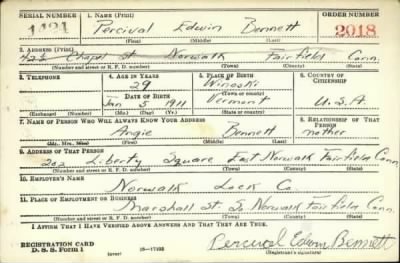 SERIAL NUMBER 1. NAME (Print) ORDER NUMBER
1421 Percival Edwin Bennett 2018
(First) (Middle) (Last)
2. ADDRESS (Print)
Chapel St Norwalk Fairfield Conn.
(Number and street or R. F. D. number) (Town) (County) (State)
3. TELEPHONE 4. AGE IN YEARS 5. PLACE OF BIRTH 6. COUNTRY OF CITIZENSHIP
29 Winooski
DATE OF BIRTH (Town or county)
Jan 5 1911 Vermont U.S.A.
(Exchange) (Number) (Mo.) (Day) (Yr.) (State or country)
7. NAME OF PERSON WHO WILL ALWAYS KNOW YOUR ADDRESS 8. RELATIONSHIP OF THAT PERSON
Angie Bennett mother
(Mr., Mrs., Miss) (First) (Middle) (Last)
9. ADDRESS OF THAT PERSON
202 Liberty Square East Norwalk Fairfield Conn
(Number and street or R. F. D. number) (Town) (County) (State)
10. EMPLOYER'S NAME
Norwalk Lock Co.
11. PLACE OF EMPLOYMENT OR BUSINESS
Marshall St. So Norwalk Fairfield Conn
(Number and street or R. F. D. number) (Town) (County) (State)
I AFFIRM THAT I HAVE VERIFIED ABOVE ANSWERS AND THAT THEY ARE TRUE.
REGISTRATION CARD
D. S. S. FORM 1 (over) Percival Edwin Bennett
(Registrant's signature)